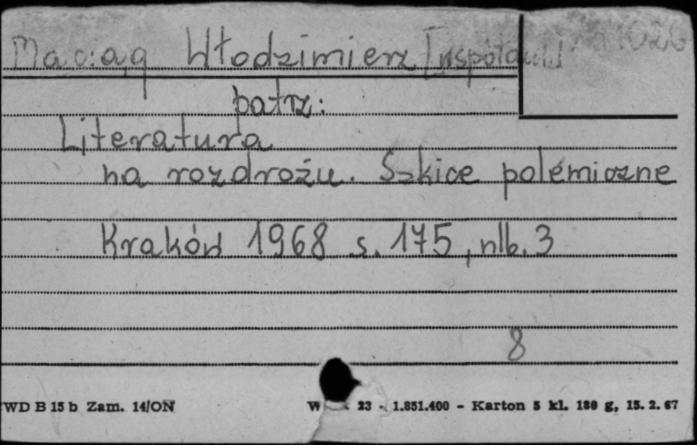 Maciąg Włodzimierz [współaut.]
patrz:
Literatura
na rozdrożu. Szkice polemiczne
Kraków 1968 s. 175, nlb. 3
8
WD B 15 b Zam. 14/ON
W 23 - 1.851.400 - Karton 5 kl. 180 g, 15. 2. 67